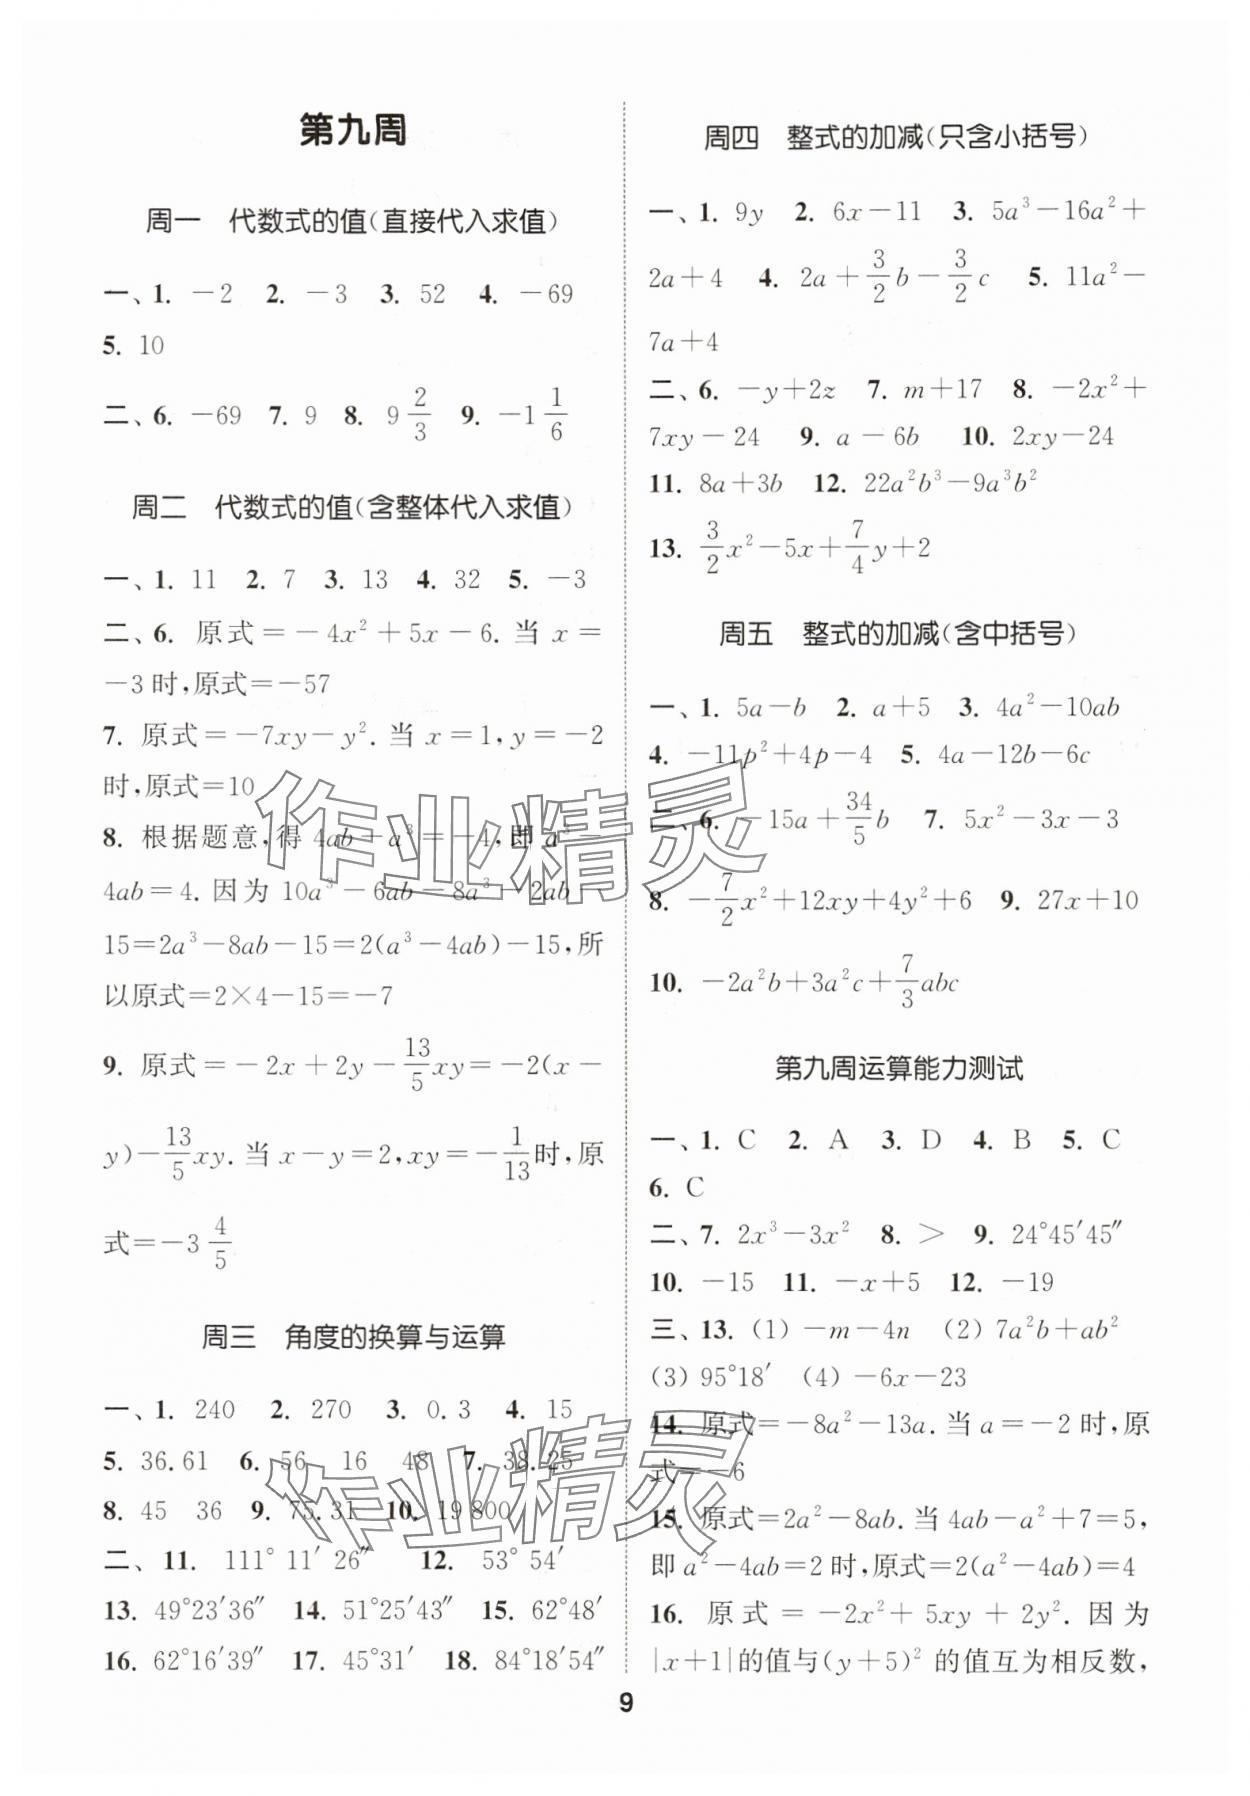 第九周
周一 代数式的值(直接代入求值)
一、1. －2 2. －3 3. 52 4. －69
5. 10
二、6. －69 7. 9 8. 9 2/3 9. －1 1/6
周二 代数式的值(含整体代入求值)
一、1. 11 2. 7 3. 13 4. 32 5. －3
二、6. 原式＝－4x²＋5x－6. 当 x＝
－3 时,原式＝－57
7. 原式＝－7xy－y². 当 x＝1,y＝－2
时,原式＝10
8. 根据题意,得 4ab－a³＝－4,即 a³－
4ab＝4. 因为 10a³－6ab－8a³－2ab
15＝2a³－8ab－15＝2(a³－4ab)－15,所
以原式＝2×4－15＝－7
9. 原式＝－2x＋2y－13/5 xy＝－2(x－
y)－13/5 xy. 当 x－y＝2,xy＝－1/13 时,原
式＝－3 4/5
周三 角度的换算与运算
一、1. 240 2. 270 3. 0.3 4. 15
5. 36.61 6. 56 16 48 7. 38.25
8. 45 36 9. 75.31 10. 19 800
二、11. 111°11′26″ 12. 53°54′
13. 49°23′36″ 14. 51°25′43″ 15. 62°48′
16. 62°16′39″ 17. 45°31′ 18. 84°18′54″
周四 整式的加减(只含小括号)
一、1. 9y 2. 6x－11 3. 5a³－16a²＋
2a＋4 4. 2a＋3/2 b－3/2 c 5. 11a²－
7a＋4
二、6. －y＋2z 7. m＋17 8. －2x²＋
7xy－24 9. a－6b 10. 2xy－24
11. 8a＋3b 12. 22a²b³－9a³b²
13. 3/2 x²－5x＋7/4 y＋2
周五 整式的加减(含中括号)
一、1. 5a－b 2. a＋5 3. 4a²－10ab
4. －11p²＋4p－4 5. 4a－12b－6c
二、6. －15a＋34/5 b 7. 5x²－3x－3
8. －7/2 x²＋12xy＋4y²＋6 9. 27x＋10
10. －2a²b＋3a²c＋7/3 abc
第九周运算能力测试
一、1. C 2. A 3. D 4. B 5. C
6. C
二、7. 2x³－3x² 8. ＞ 9. 24°45′45″
10. －15 11. －x＋5 12. －19
三、13. (1) －m－4n (2) 7a²b＋ab²
(3) 95°18′ (4) －6x－23
14. 原式＝－8a²－13a. 当 a＝－2 时,原
式＝－6
15. 原式＝2a²－8ab. 当 4ab－a²＋7＝5,
即 a²－4ab＝2 时,原式＝2(a²－4ab)＝4
16. 原式＝－2x²＋5xy＋2y². 因为
|x＋1|的值与(y＋5)² 的值互为相反数,
9
作业精灵
作业精灵